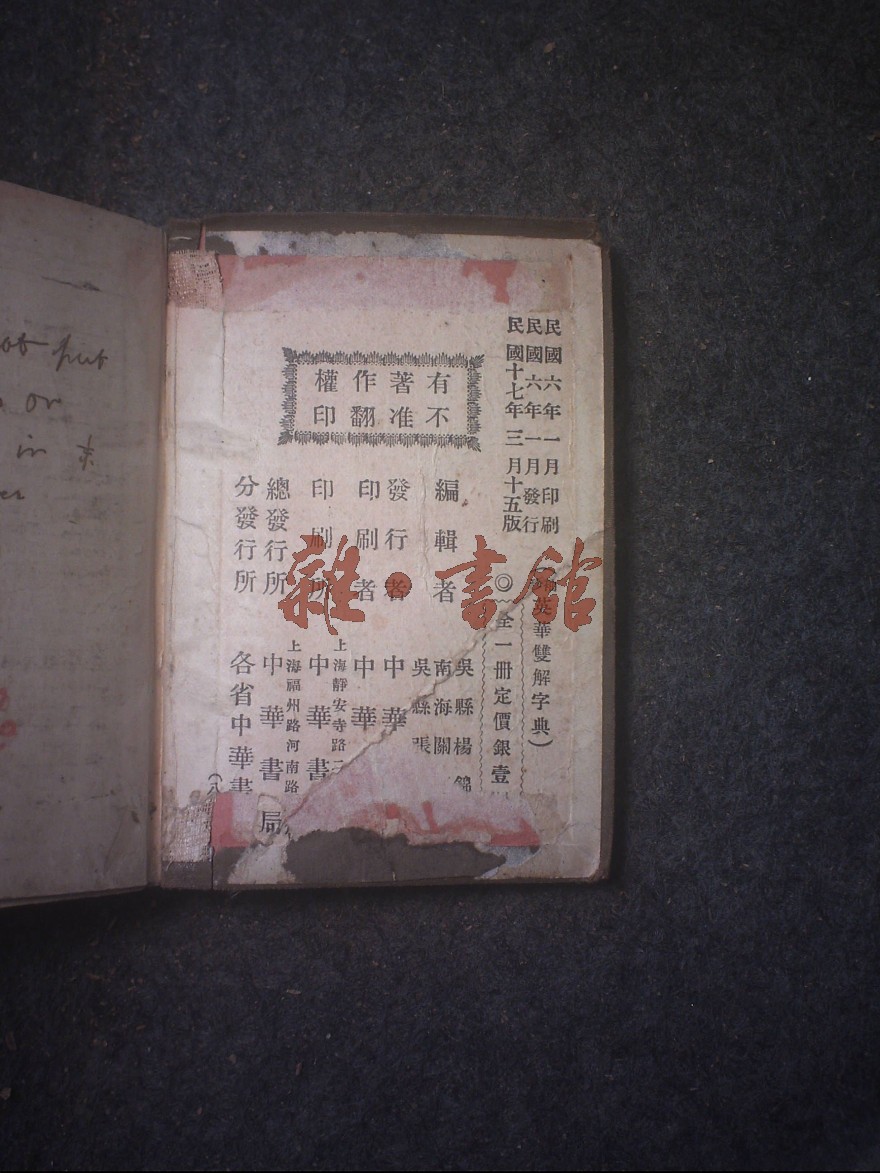 民國六年一月印刷
民國六年一月發行
民國十七年三月十五版
英華雙解字典)
◎全一冊定價銀壹
有著作權
不准翻印
編輯者
吳縣楊錦
南海關
吳縣張
發行者 中華
印刷者 中華
印刷所
上海靜安寺路
中華書
總發行所
上海福州路河南路
中華書局
分發行所 各省中華書
(八
雜·書館
put
or
in